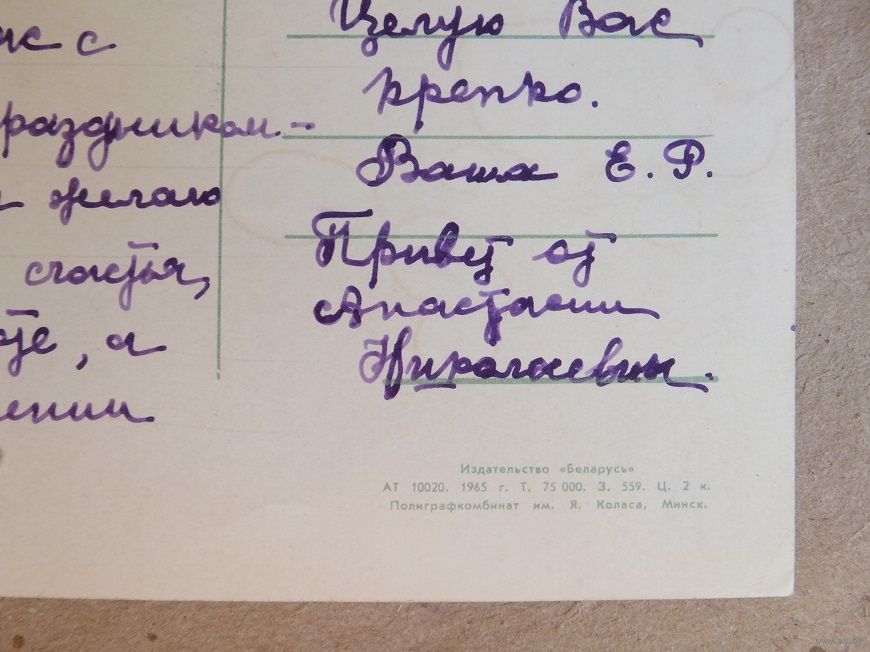 с
праздником —
желаю
счастья,
, а
Целую Вас
крепко.
Ваша Е. Р.
Привет от
Анастасии
Николаевны.
Издательство «Беларусь»
АТ 10020. 1965 г. Т. 75 000. З. 559. Ц. 2 к.
Полиграфкомбинат им. Я. Коласа, Минск.